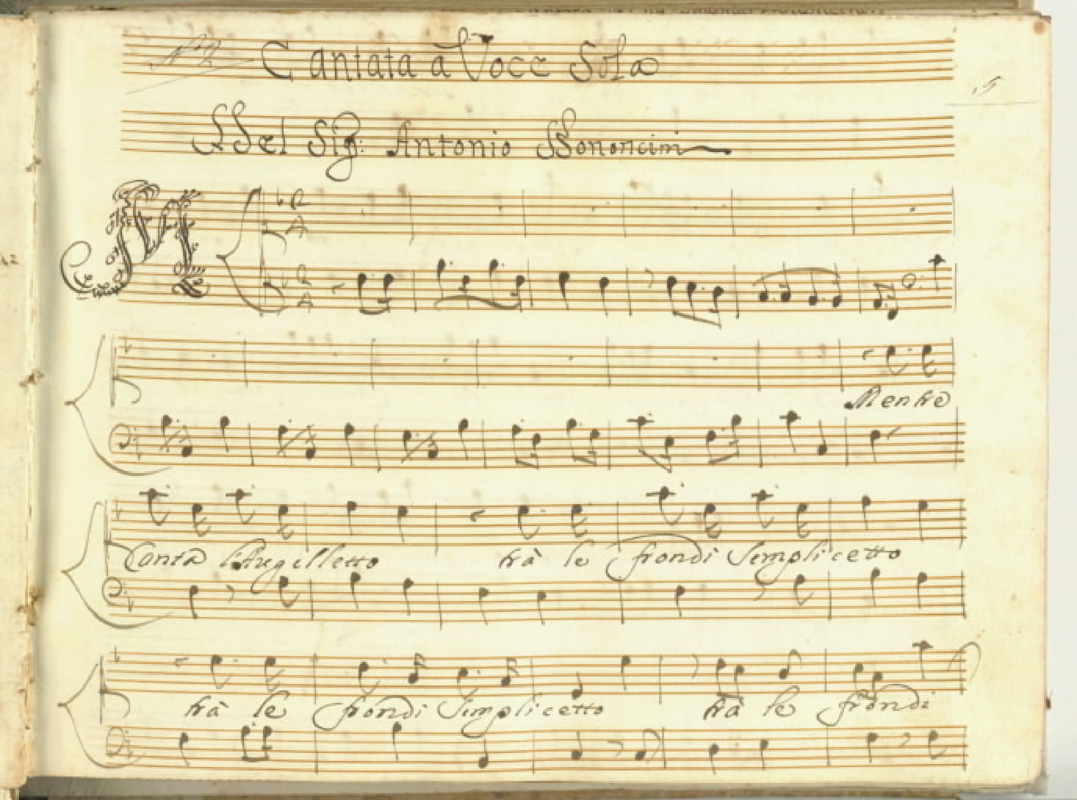 Nº 2 Cantata a Voce Sola
5
Del Sig: Antonio Bononcini
M
Mentre
Canta l'Augelletto trà le frondi Semplicetto
trà le frondi Semplicetto trà le frondi